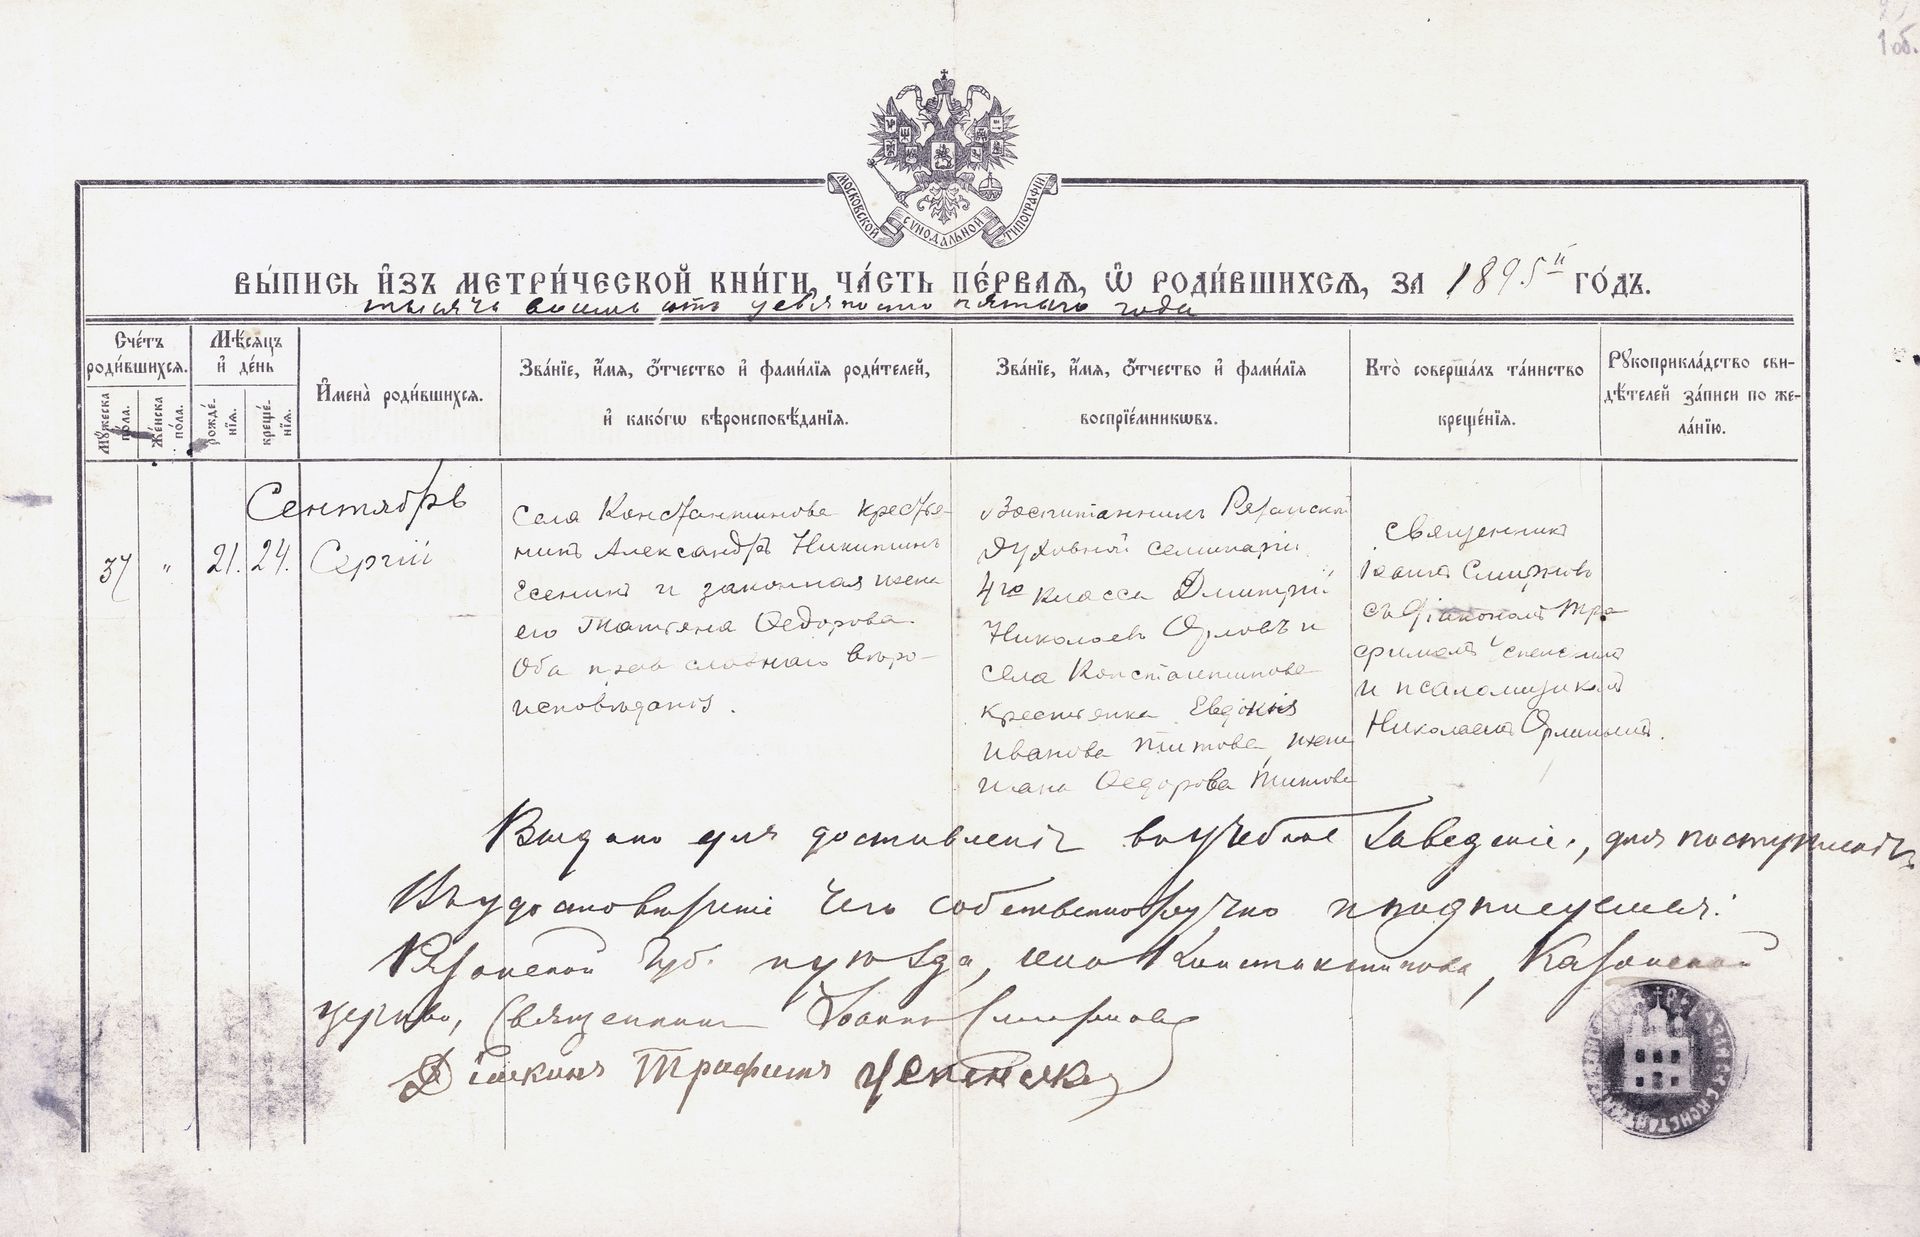 1 об.
МОСКОВСКОЙ СѴНОДАЛЬНОЙ ТИПОГРАФІИ.
ВЫ́ПИСЬ И҆ЗЪ МЕТРИ́ЧЕСКОЙ КНИ́ГИ, ЧА́СТЬ ПЕ́РВАѦ, Ѡ҆ РОДИ́ВШИХСѦ, ЗА 1895й ГО́ДЪ.
тысяча восемьсотъ девяносто пятаго года
Сче́тъ роди́вшихсѧ.
Мꙋ́жеска по́ла.
Же́нска по́ла.
Мѣ́сѧцъ и҆ де́нь
рожде́нїѧ.
креще́нїѧ.
И҆мена̀ роди́вшихсѧ.
Зва́нїе, и҆́мѧ, ѻ҆́тчество и҆ фами́лїѧ роди́телей, и҆ како́гѡ вѣроисповѣ́данїѧ.
Зва́нїе, и҆́мѧ, ѻ҆́тчество и҆ фами́лїѧ воспрїе́мникѡвъ.
Кто̀ соверша́лъ та́инство креще́нїѧ.
Рꙋкоприкла́дство сви-
дѣ́телей за́писи по же-
ла́нїю.
Сентябрь
37 " 21. 24. Сергій
Села Константинова крестья-
нинъ Александръ Никитинъ
Есенинъ и законная жена
его Татьяна Ѳедорова.
Оба православнаго вѣро-
исповѣданія.
Воспитанникъ Рязанской
духовной семинаріи
4го класса Димитрій
Николаевъ Орловъ и
села Константинова
крестьянка Евдокія
Иванова Титова, жена
Ивана Ѳедорова Титова
Священникъ
Іоаннъ Смирновъ
съ діакономъ Тро
фимомъ Успенскимъ
и псаломщикомъ
Николаемъ Орлинымъ.
Выдано для доставленія въ учебное заведеніе, для поступленія
Въ удостовѣреніе чего собственноручно и подписуемся:
Рязанской Губ. и уѣзда, села Константинова, Казанской
церкви, Священникъ Іоаннъ Смирновъ
Діаконъ Трофимъ Успенскій